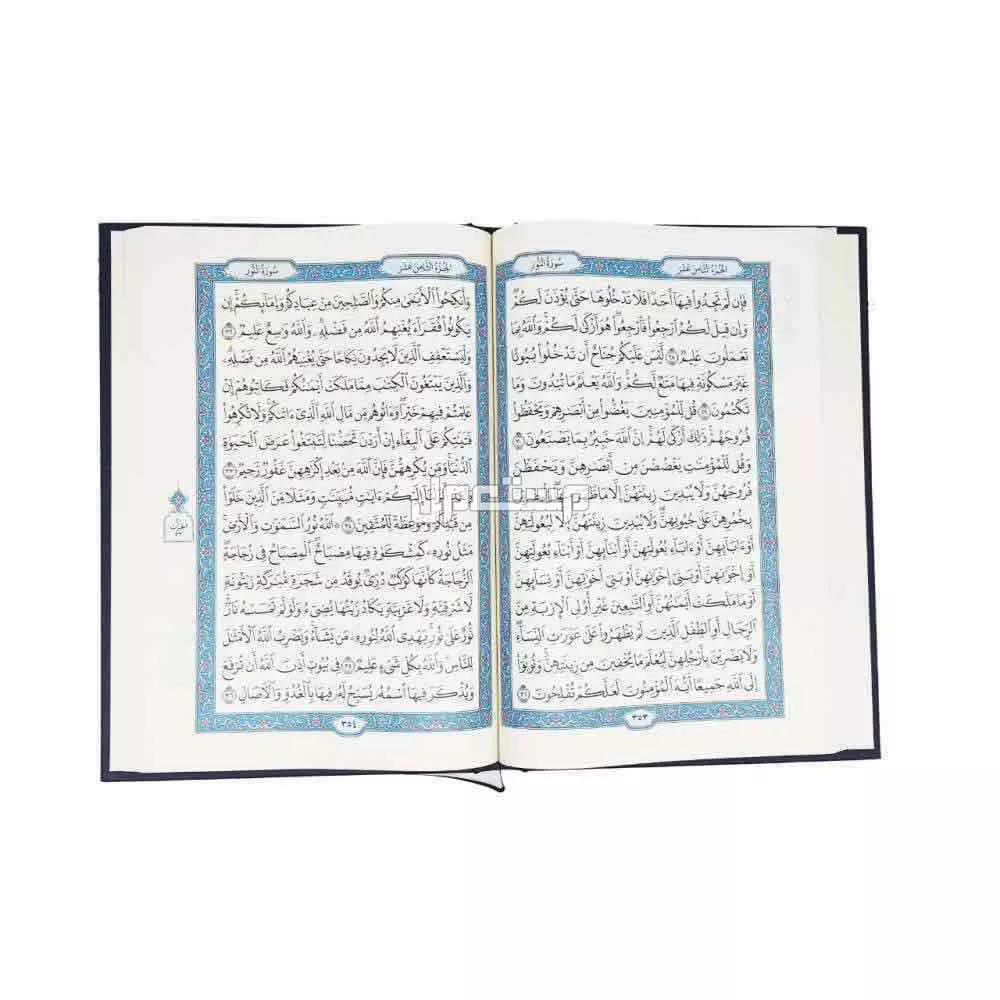 الجُزءُ الثَّامِنَ عَشَرَ
سُورَةُ النُّورِ
فَإِن لَّمْ تَجِدُواْ فِيهَآ أَحَدًا فَلَا تَدْخُلُوهَا حَتَّىٰ يُؤْذَنَ لَكُمْ
وَإِن قِيلَ لَكُمُ ٱرْجِعُواْ فَٱرْجِعُواْ هُوَ أَزْكَىٰ لَكُمْ وَٱللَّهُ بِمَا
تَعْمَلُونَ عَلِيمٌ ٢٨ لَّيْسَ عَلَيْكُمْ جُنَاحٌ أَن تَدْخُلُواْ بُيُوتًا
غَيْرَ مَسْكُونَةٍ فِيهَا مَتَٰعٌ لَّكُمْ وَٱللَّهُ يَعْلَمُ مَا تُبْدُونَ وَمَا
تَكْتُمُونَ ٢٩ قُل لِّلْمُؤْمِنِينَ يَغُضُّواْ مِنْ أَبْصَٰرِهِمْ وَيَحْفَظُواْ
فُرُوجَهُمْ ذَٰلِكَ أَزْكَىٰ لَهُمْ إِنَّ ٱللَّهَ خَبِيرٌۢ بِمَا يَصْنَعُونَ ٣٠
وَقُل لِّلْمُؤْمِنَٰتِ يَغْضُضْنَ مِنْ أَبْصَٰرِهِنَّ وَيَحْفَظْنَ
فُرُوجَهُنَّ وَلَا يُبْدِينَ زِينَتَهُنَّ إِلَّا مَا ظَهَرَ مِنْهَا وَلْيَضْرِبْنَ
بِخُمُرِهِنَّ عَلَىٰ جُيُوبِهِنَّ وَلَا يُبْدِينَ زِينَتَهُنَّ إِلَّا لِبُعُولَتِهِنَّ
أَوْ ءَابَآئِهِنَّ أَوْ ءَابَآءِ بُعُولَتِهِنَّ أَوْ أَبْنَآئِهِنَّ أَوْ أَبْنَآءِ بُعُولَتِهِنَّ
أَوْ إِخْوَٰنِهِنَّ أَوْ بَنِىٓ إِخْوَٰنِهِنَّ أَوْ بَنِىٓ أَخَوَٰتِهِنَّ أَوْ نِسَآئِهِنَّ
أَوْ مَا مَلَكَتْ أَيْمَٰنُهُنَّ أَوِ ٱلتَّٰبِعِينَ غَيْرِ أُوْلِى ٱلْإِرْبَةِ مِنَ
ٱلرِّجَالِ أَوِ ٱلطِّفْلِ ٱلَّذِينَ لَمْ يَظْهَرُواْ عَلَىٰ عَوْرَٰتِ ٱلنِّسَآءِ
وَلَا يَضْرِبْنَ بِأَرْجُلِهِنَّ لِيُعْلَمَ مَا يُخْفِينَ مِن زِينَتِهِنَّ وَتُوبُوٓاْ
إِلَى ٱللَّهِ جَمِيعًا أَيُّهَ ٱلْمُؤْمِنُونَ لَعَلَّكُمْ تُفْلِحُونَ ٣١
٣٥٣
الجُزءُ الثَّامِنَ عَشَرَ
سُورَةُ النُّورِ
وَأَنكِحُواْ ٱلْأَيَٰمَىٰ مِنكُمْ وَٱلصَّٰلِحِينَ مِنْ عِبَادِكُمْ وَإِمَآئِكُمْ إِن
يَكُونُواْ فُقَرَآءَ يُغْنِهِمُ ٱللَّهُ مِن فَضْلِهِۦ وَٱللَّهُ وَٰسِعٌ عَلِيمٌ ٣٢
وَلْيَسْتَعْفِفِ ٱلَّذِينَ لَا يَجِدُونَ نِكَاحًا حَتَّىٰ يُغْنِيَهُمُ ٱللَّهُ مِن فَضْلِهِۦ
وَٱلَّذِينَ يَبْتَغُونَ ٱلْكِتَٰبَ مِمَّا مَلَكَتْ أَيْمَٰنُكُمْ فَكَاتِبُوهُمْ إِنْ
عَلِمْتُمْ فِيهِمْ خَيْرًا وَءَاتُوهُم مِّن مَّالِ ٱللَّهِ ٱلَّذِىٓ ءَاتَىٰكُمْ وَلَا تُكْرِهُواْ
فَتَيَٰتِكُمْ عَلَى ٱلْبِغَآءِ إِنْ أَرَدْنَ تَحَصُّنًا لِّتَبْتَغُواْ عَرَضَ ٱلْحَيَوٰةِ
ٱلدُّنْيَا وَمَن يُكْرِههُّنَّ فَإِنَّ ٱللَّهَ مِنۢ بَعْدِ إِكْرَٰهِهِنَّ غَفُورٌ رَّحِيمٌ ٣٣
وَلَقَدْ أَنزَلْنَآ إِلَيْكُمْ ءَايَٰتٍ مُّبَيِّنَٰتٍ وَمَثَلًا مِّنَ ٱلَّذِينَ خَلَوْاْ
مِن قَبْلِكُمْ وَمَوْعِظَةً لِّلْمُتَّقِينَ ٣٤ ۞ ٱللَّهُ نُورُ ٱلسَّمَٰوَٰتِ وَٱلْأَرْضِ
مَثَلُ نُورِهِۦ كَمِشْكَوٰةٍ فِيهَا مِصْبَاحٌ ٱلْمِصْبَاحُ فِى زُجَاجَةٍ
ٱلزُّجَاجَةُ كَأَنَّهَا كَوْكَبٌ دُرِّىٌّ يُوقَدُ مِن شَجَرَةٍ مُّبَٰرَكَةٍ زَيْتُونَةٍ
لَّا شَرْقِيَّةٍ وَلَا غَرْبِيَّةٍ يَكَادُ زَيْتُهَا يُضِىٓءُ وَلَوْ لَمْ تَمْسَسْهُ نَارٌ
نُّورٌ عَلَىٰ نُورٍ يَهْدِى ٱللَّهُ لِنُورِهِۦ مَن يَشَآءُ وَيَضْرِبُ ٱللَّهُ ٱلْأَمْثَٰلَ
لِلنَّاسِ وَٱللَّهُ بِكُلِّ شَىْءٍ عَلِيمٌ ٣٥ فِى بُيُوتٍ أَذِنَ ٱللَّهُ أَن تُرْفَعَ
وَيُذْكَرَ فِيهَا ٱسْمُهُۥ يُسَبِّحُ لَهُۥ فِيهَا بِٱلْغُدُوِّ وَٱلْأَصَالِ ٣٦
٣٥٤
مستعمل